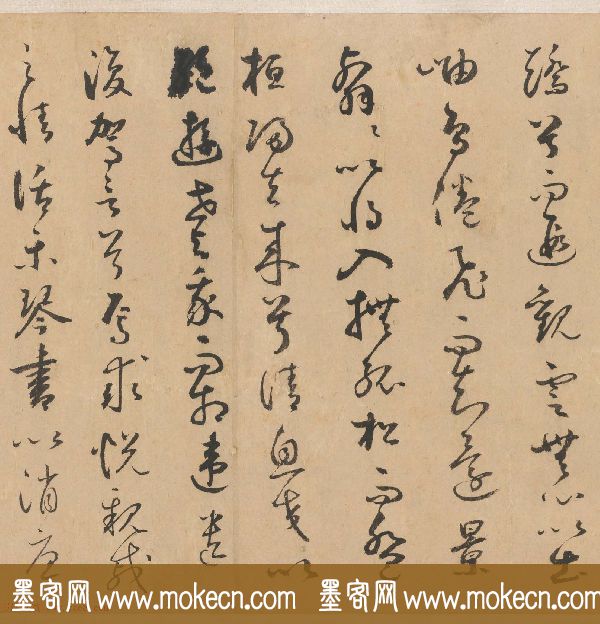 矯首而遐觀雲無心以出
岫鳥倦飛而知還景
翳翳以將入撫孤松而盤
桓歸去來兮請息交以
遊世與我而相違
復駕言兮焉求悅親戚
之情話樂琴書以消憂
墨客网 www.mokecn.com 墨客网 www.mokecn.com